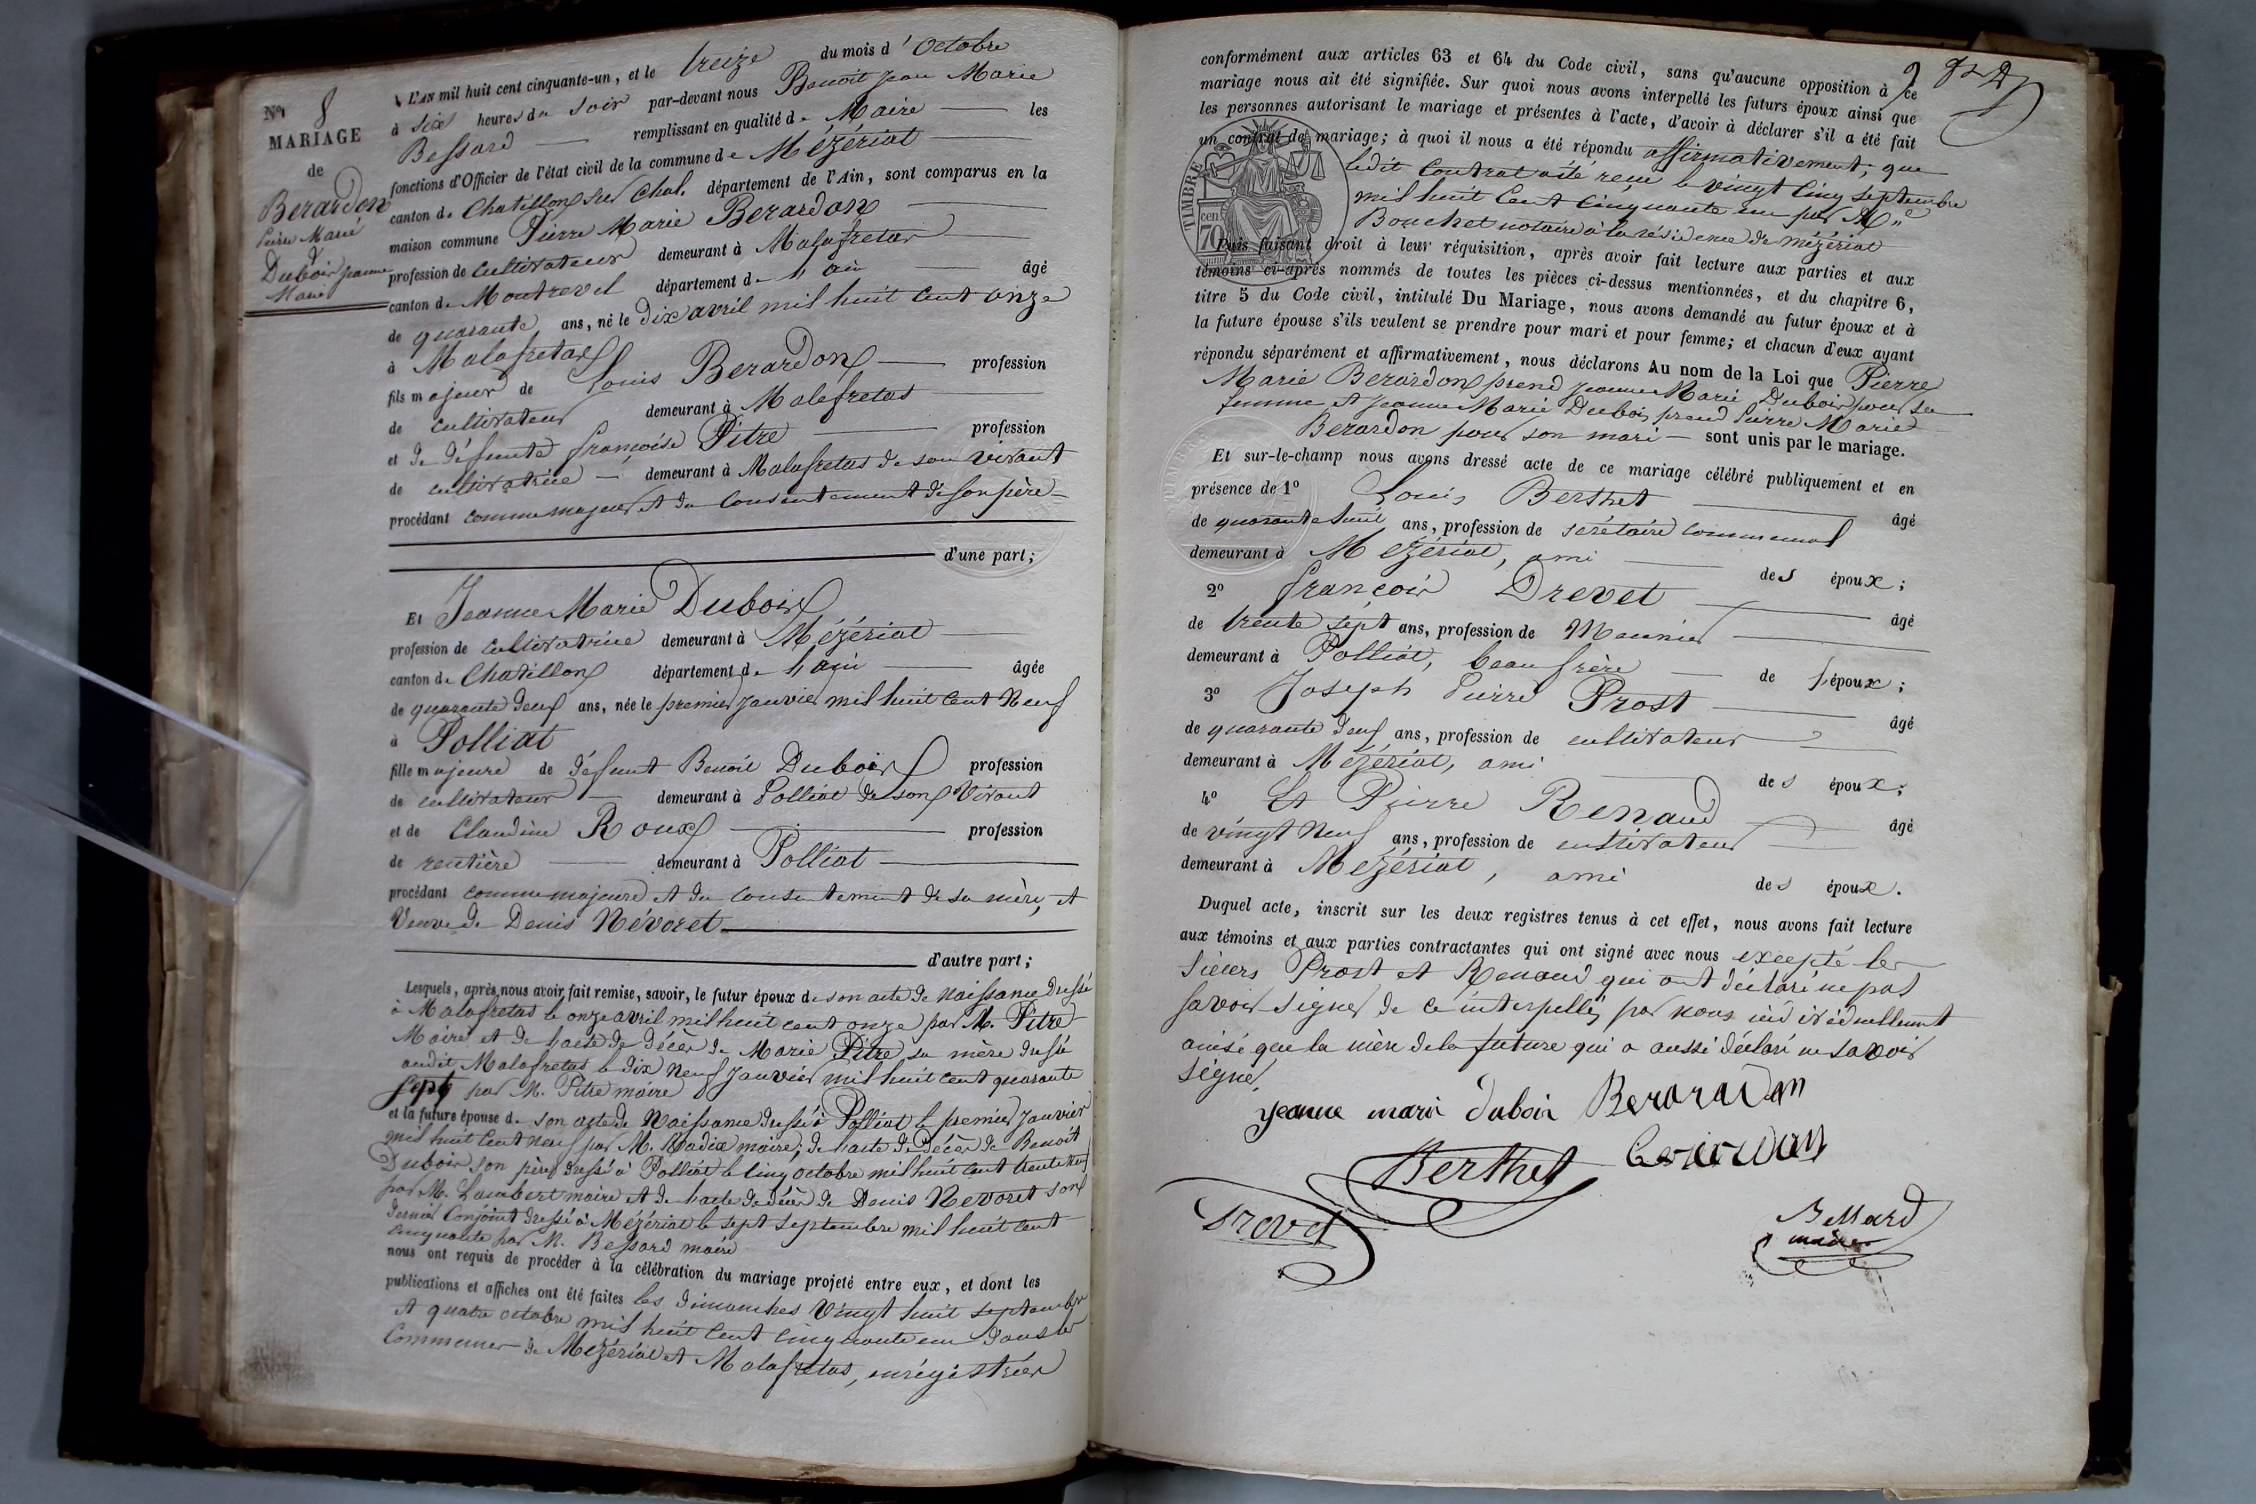 No 8
MARIAGE
de
Berardon
Pierre Marie
&
Dubois jeanne
Marie
L'AN mil huit cent cinquante-un, et le treize du mois d'Octobre
à six heures du soir par-devant nous Benoit Jean Marie
Bessard remplissant en qualité de Maire les
fonctions d'Officier de l'état civil de la commune de Mézériat
canton de Chatillon sur Chal. département de l'Ain, sont comparus en la
maison commune Pierre Marie Berardon
profession de cultivateur demeurant à Malafretas
canton de Montrevel département de l'ain âgé
de quarante ans, né le dix avril mil huit cent onze
à Malafretas
fils majeur de Louis Berardon profession
de cultivateur demeurant à Malafretas
et de défunte françoise Pitre profession
de cultivatrice demeurant à Malafretas de son vivant
procédant comme majeur et du consentement de son père
d'une part;
Et Jeanne Marie Dubois
profession de cultivatrice demeurant à Mézériat
canton de Chatillon département de l'ain âgée
de quarante deux ans, née le premier janvier mil huit cent Neuf
à Polliat
fille majeure de défunt Benoit Dubois profession
de cultivateur demeurant à Polliat de son Vivant
et de Claudine Roux profession
de rentière demeurant à Polliat
procédant comme majeure et du consentement de sa mère, et
Veuve de Denis Névoret
d'autre part;
Lesquels, après nous avoir fait remise, savoir, le futur époux de son acte de Naissance dressé
à Malafretas le onze avril mil huit cent onze par M. Pitre
Maire et de l'acte de décès de Marie Pitre sa mère dressé
audit Malafretas le dix neuf Janvier mil huit cent quarante
sept par M. Pitre maire
et la future épouse de son acte de Naissance dressé à Polliat le premier Janvier
mil huit cent neuf par M. maire; de l'acte de Décès de Benoit
Dubois son père dressé à Polliat le cinq octobre mil huit cent trente
par M. Lambert maire et de l'acte de décès de Denis Nevoret son
dernier Conjoint dressé à Mézériat le sept septembre mil huit cent
cinquante par M. Bessard maire
nous ont requis de procéder à la célébration du mariage projeté entre eux, et dont les
publications et affiches ont été faites les dimanches Vingt huit septembre
et quatre octobre mil huit cent cinquante un dans les
Communes de Mézériat et Malafretas, enrégistrées
conformément aux articles 63 et 64 du Code civil, sans qu'aucune opposition à ce
mariage nous ait été signifiée. Sur quoi nous avons interpellé les futurs époux ainsi que
les personnes autorisant le mariage et présentes à l'acte, d'avoir à déclarer s'il a été fait
un contrat de mariage; à quoi il nous a été répondu affirmativement; que
ledit contrat a été reçu le vingt cinq septembre
mil huit cent cinquante un par Me
Bouchet notaire à la résidence de mézériat
TIMBRE
cen
70
Puis faisant droit à leur réquisition, après avoir fait lecture aux parties et aux
témoins ci-après nommés de toutes les pièces ci-dessus mentionnées, et du chapitre 6,
titre 5 du Code civil, intitulé Du Mariage, nous avons demandé au futur époux et à
la future épouse s'ils veulent se prendre pour mari et pour femme; et chacun d'eux ayant
répondu séparément et affirmativement, nous déclarons Au nom de la Loi que Pierre
Marie Berardon prend Jeanne Marie Dubois pour sa
femme et Jeanne Marie Dubois prend Pierre Marie
Berardon pour son mari sont unis par le mariage.
Et sur-le-champ nous avons dressé acte de ce mariage célébré publiquement et en
présence de 1o Louis Berthet âgé
de quarante huit ans, profession de secrétaire communal
demeurant à Mézériat, ami des époux;
2o françois Drevet âgé
de trente sept ans, profession de Meunier
demeurant à Polliat, beau frère de l'époux;
3o Joseph Pierre Prost âgé
de quarante deux ans, profession de cultivateur
demeurant à Mézériat, ami des époux;
4o Et Pierre Renaud âgé
de vingt Neuf ans, profession de cultivateur
demeurant à Mezériat, ami des époux.
Duquel acte, inscrit sur les deux registres tenus à cet effet, nous avons fait lecture
aux témoins et aux parties contractantes qui ont signé avec nous excepté les
Sieurs Prost et Renaud qui ont déclaré ne pas
savoir signer de ce interpellés par nous individuellement
ainsi que la mère de la future qui a aussi déclaré ne savoir
signer.
jeanne marie dubois Berardon
Berthet Berardon
Drevet
Bessard
maire